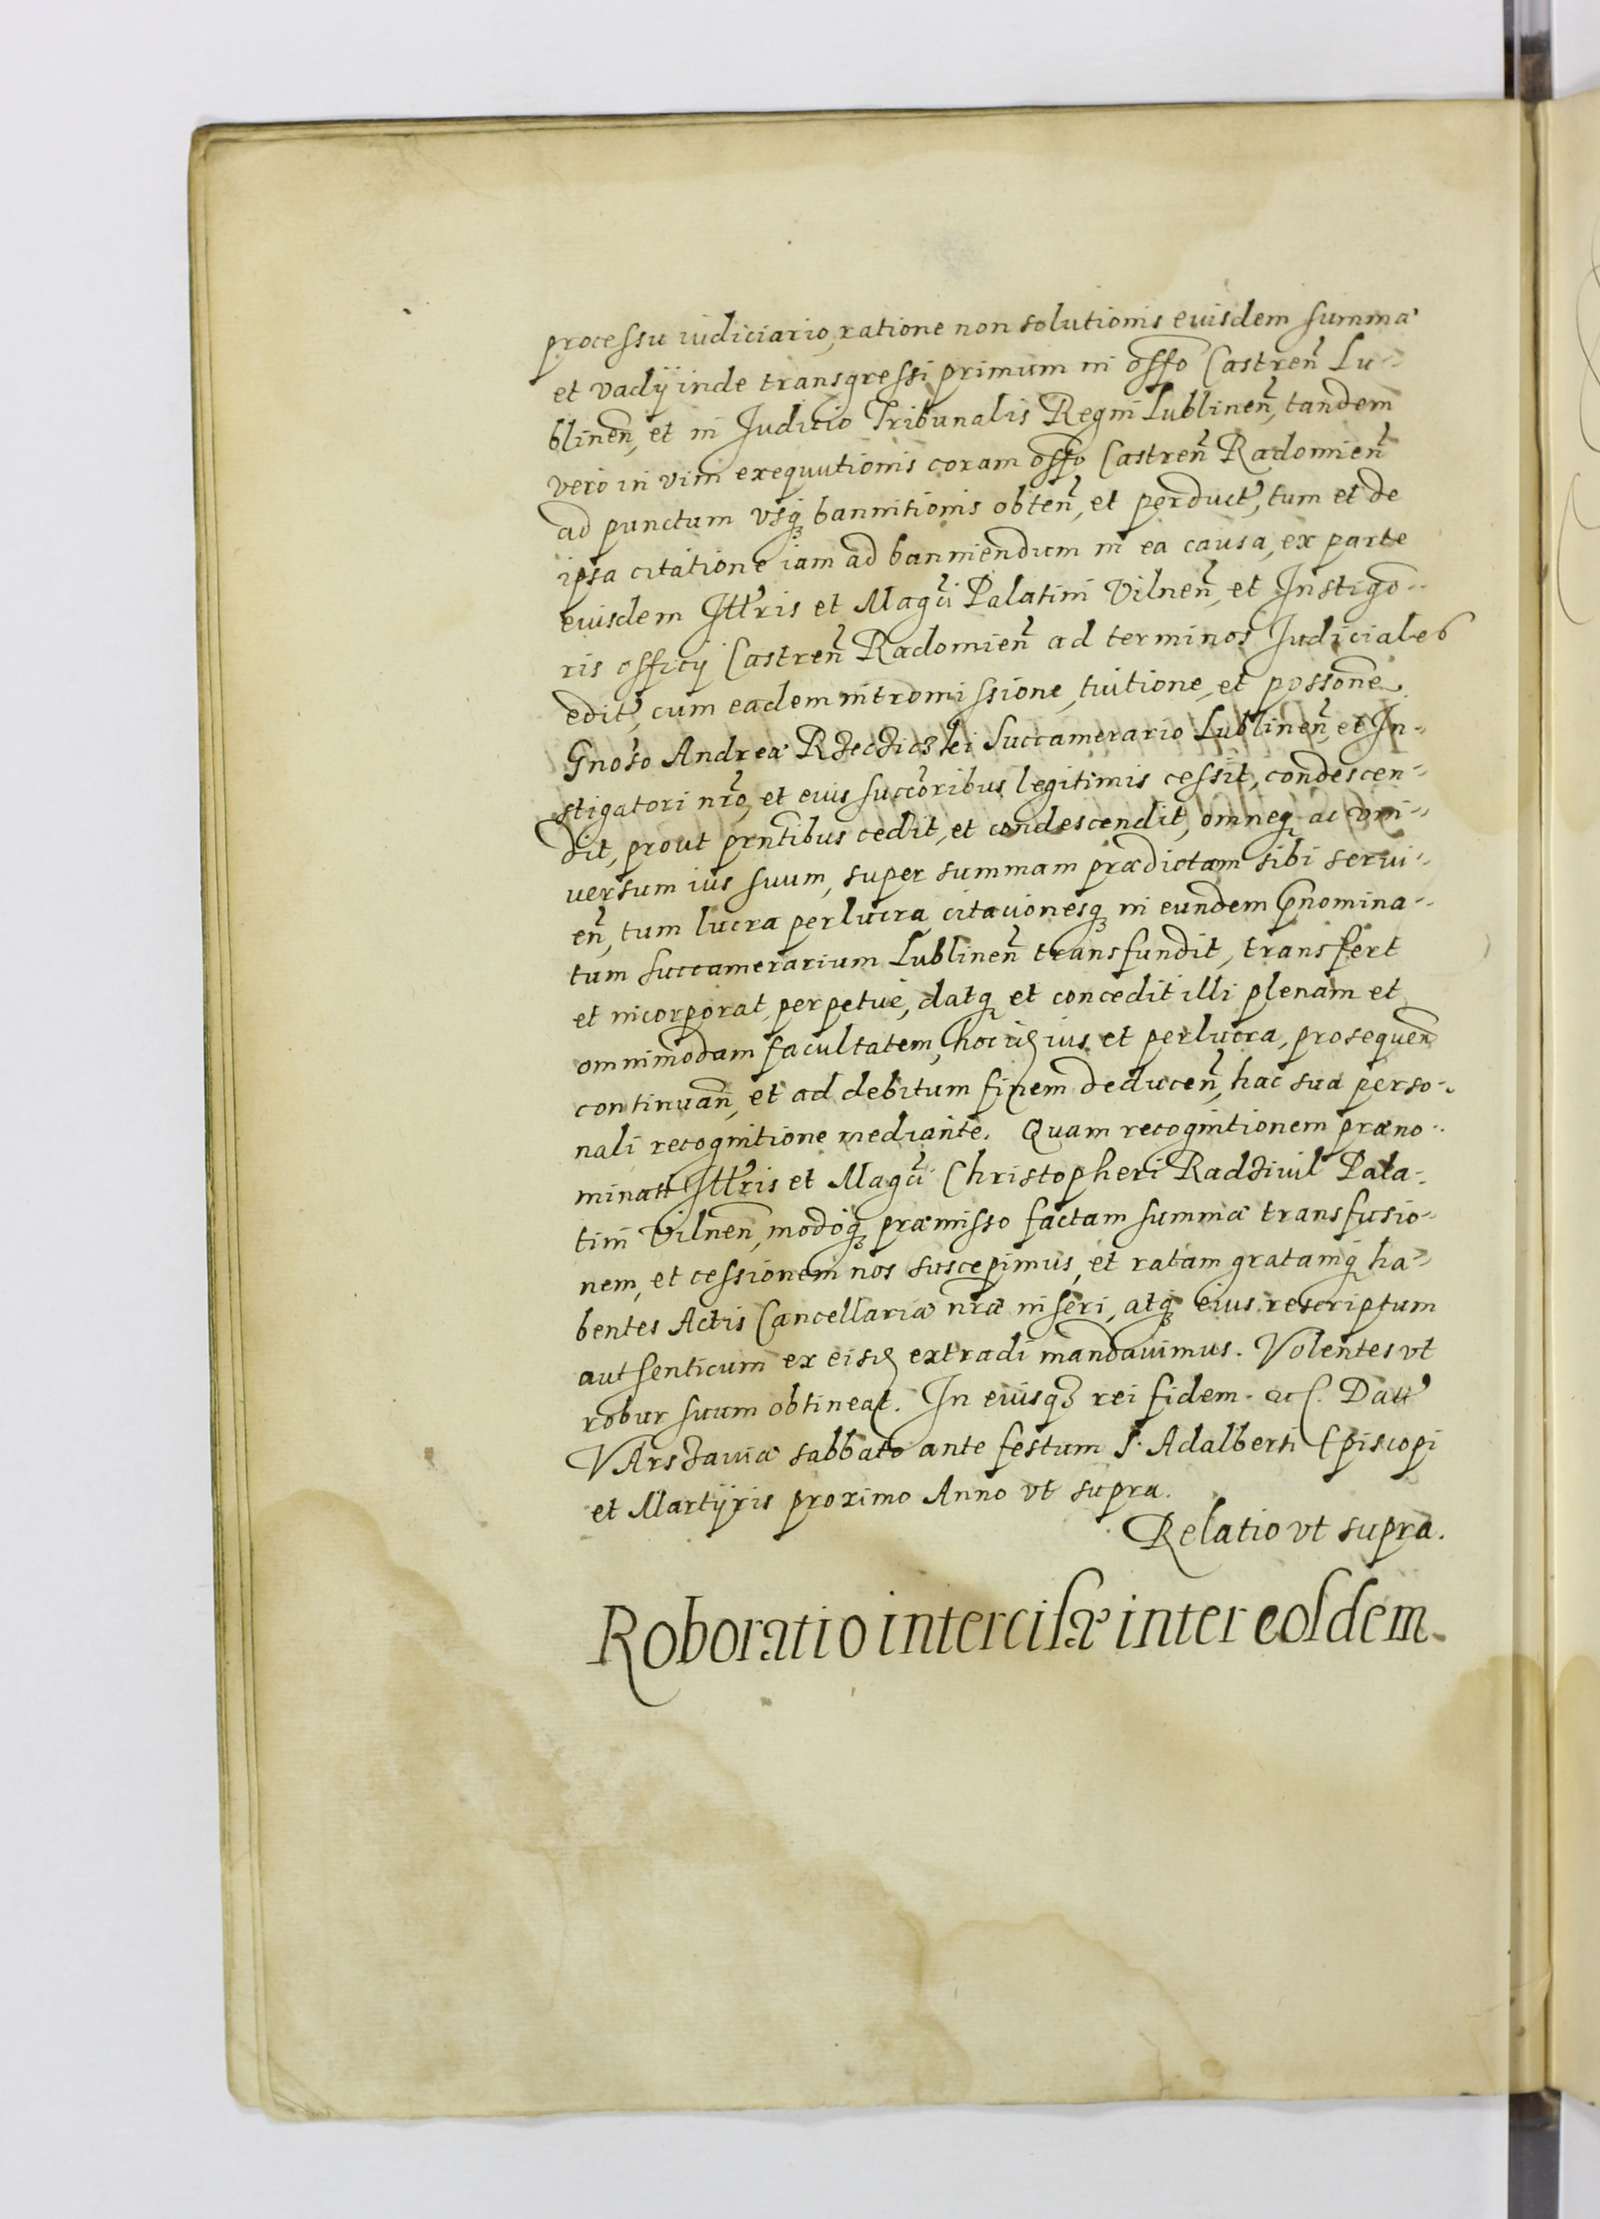 processu iudiciario, ratione non solutionis eiusdem summæ
et vadÿ inde transgressi primum in offo Castren̄ Lu-
blinen̄, et in Judicio Tribunalis Regni Lublinen̄, tandem
vero in vim exequutionis coram offo Castren̄ Radomien̄
ad punctum vsq; bannitionis obten̄, et perduct, tum et de
ipsa citatione iam ad banniendum in ea causa, ex parte
eiusdem Illris et Magci Palatini Vilnen̄, et Instigo-
ris officÿ Castren̄ Radomien̄ ad terminos Judiciales
edit, cum eadem intromissione, tuitione, et possone
Gnoso Andreæ Rzeczicski Succamerario Lublinen̄, et In-
stigatori nr̄o, et eius succoribus legitimis cessit, condescen-
dit, prout prntibus cedit, et condescendit, omneq; ac vni-
uersum ius suum, super summam prædictam sibi serui-
en̄, tum lucra perlucra citationesq; in eundem p̄nomina-
tum Succamerarium Lublinen̄ transfundit, transfert
et incorporat perpetue, datq; et concedit illi plenam et
omnimodam facultatem, hoc ius et perlucra, prosequen̄
continuan̄, et ad debitum finem deducen̄, hac sua perso-
nali recognitione mediante. Quam recognitionem præno-
minati Illris et Magci Christopheri Radziuil Pala-
tini Vilnen̄, modoq; præmisso factam summæ transfusio-
nem, et cessionem nos suscepimus, et ratam gratamq; ha-
bentes Actis Cancellariæ nr̄æ inseri, atq; eius rescriptum
authenticum ex eisd extradi mandauimus. Volentes vt
robur suum obtineat. In eiusq; rei fidem etc. Datt
VArszauiæ sabbato ante festum S. Adalberti Episcopi
et Martÿris proximo Anno vt supra.
Relatio vt supra.
Roboratio intercisæ inter eosdem.